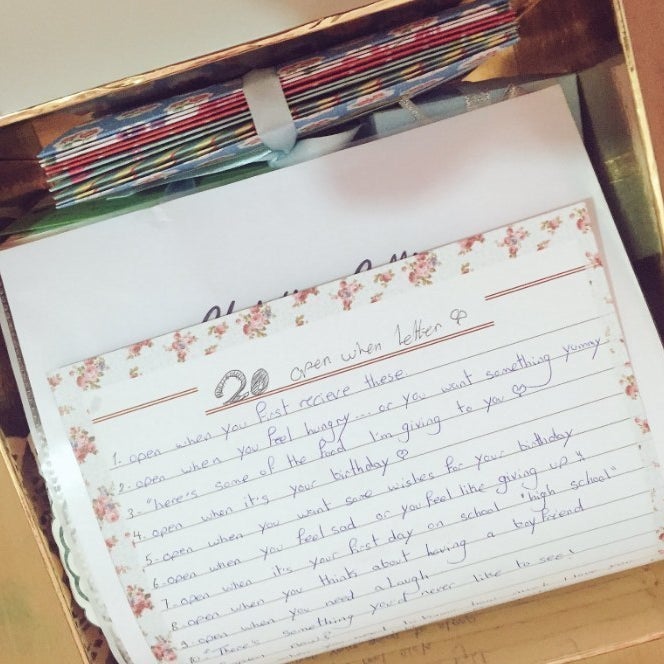 20 open when letter ♡
1. open when you first recieve these.
2. open when you feel hungry... or you want something yummy
3- "here's some of the food I'm giving to you ♡
4. open when it's your birthday ♡
5. open when you want some wishes for your birthday
6. open when you feel sad or you feel like giving up "
7. open when it's your first day on school "high school"
8. open when you think about having a boyfriend
9. open when you need a laugh
10. "There's something you'd never like to see!